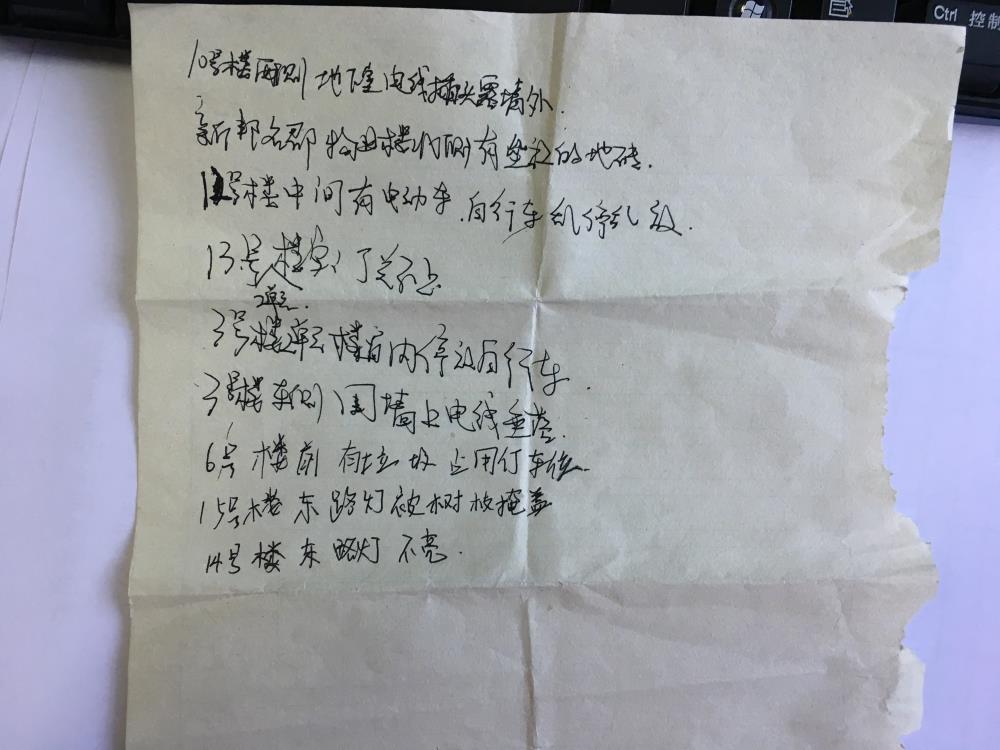 Ctrl 控制
10号楼西侧地下室电线插头露墙外.
新邦名郡物业楼北侧有垒拉的地砖.
12号楼中间有电动车.自行车乱停乱放.
13号楼 门关不上
2单元
3号楼单元楼宙内停放自行车.
3号楼东侧围墙上电线垂落.
6号楼前有垃圾占用停车位
15号楼东路灯被树枝掩盖
14号楼东路灯不亮.